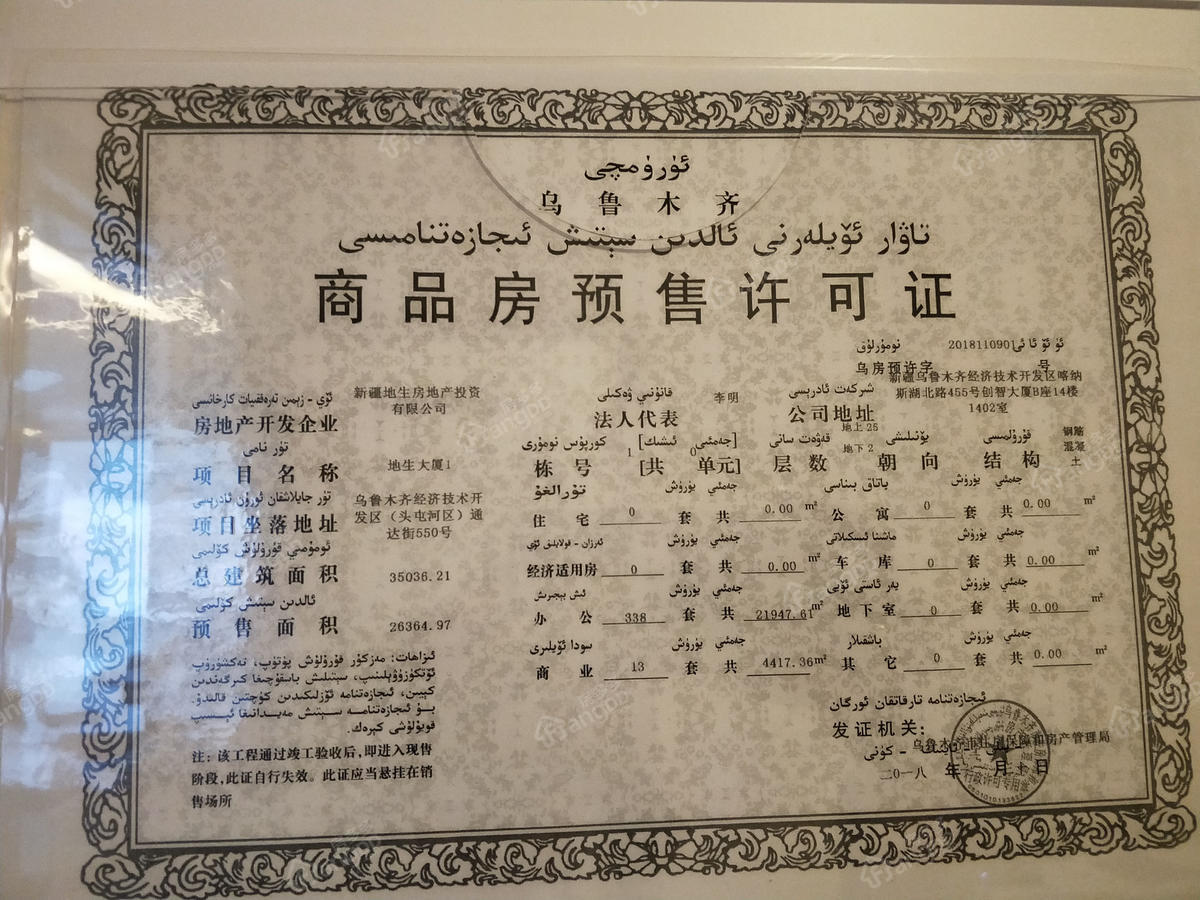 ئۈرۈمچى
乌鲁木齐
تاۋار ئۆيلەرنى ئالدىن سېتىش ئىجازەتنامىسى
商品房预售许可证
ئۈ ئۆ ئا ئى 2018110901 نومۇرلۇق
乌房预许字 号
ئۆي - زېمىن تەرەققىيات كارخانىسى
房地产开发企业 新疆地生房地产投资有限公司
قانۇنىي ۋەكىلى
法人代表 李明
شىركەت ئادرېسى
公司地址 新疆乌鲁木齐经济技术开发区喀纳斯湖北路455号创智大厦B座14楼1402室
تۈر نامى
项目名称 地生大厦1
كورپۇس نومۇرى [جەمئىي ئىشىك] قەۋەت سانى يۆنىلىشى قۇرۇلمىسى
栋号 1 [共 0 单元] 层数 地上25 地下2 朝向 结构 钢筋混凝土
تۈر جايلاشقان ئورۇن ئادرېسى
项目坐落地址 乌鲁木齐经济技术开发区（头屯河区）通达街550号
ئومۇمىي قۇرۇلۇش كۆلىمى
总建筑面积 35036.21
ئالدىن سېتىش كۆلىمى
预售面积 26364.97
تۇرالغۇ يۈرۈش جەمئىي
住宅 0 套 共 0.00 m²
باتاق بىناسى يۈرۈش جەمئىي
公寓 0 套 共 0.00 m²
ئەرزان - قولايلىق ئۆي يۈرۈش جەمئىي
经济适用房 0 套 共 0.00 m²
ماشىنا ئىسكىلاتى يۈرۈش جەمئىي
车库 0 套 共 0.00 m²
ئىش بېجىرىش يۈرۈش جەمئىي
办公 338 套 共 21947.61 m²
يەر ئاستى ئۆيى يۈرۈش جەمئىي
地下室 0 套 共 0.00 m²
سودا ئۆيلىرى يۈرۈش جەمئىي
商业 13 套 共 4417.36 m²
باشقىلار يۈرۈش جەمئىي
其它 0 套 共 0.00 m²
ئىزاھات: مەزكۇر قۇرۇلۇش پۈتۈپ، تەكشۈرۈپ
ئۆتكۈزۈۋېلىنىپ، سېتىلىش باسقۇچىغا كىرگەندىن
كېيىن، ئىجازەتنامە ئۆزلىكىدىن كۈچتىن قالىدۇ.
بۇ ئىجازەتنامە سېتىش مەيدانىغا ئېسىپ
قويۇلۇشى كېرەك.
注：该工程通过竣工验收后，即进入现售
阶段，此证自行失效。此证应当悬挂在销
售场所
ئىجازەتنامە تارقاتقان ئورگان
发证机关：
乌鲁木齐市住房保障和房产管理局
二〇一八 年 月 十 日
行政许可专用章